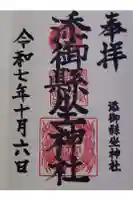 奉拝
添御縣坐神社
添御縣坐神社
令和七年十月六日